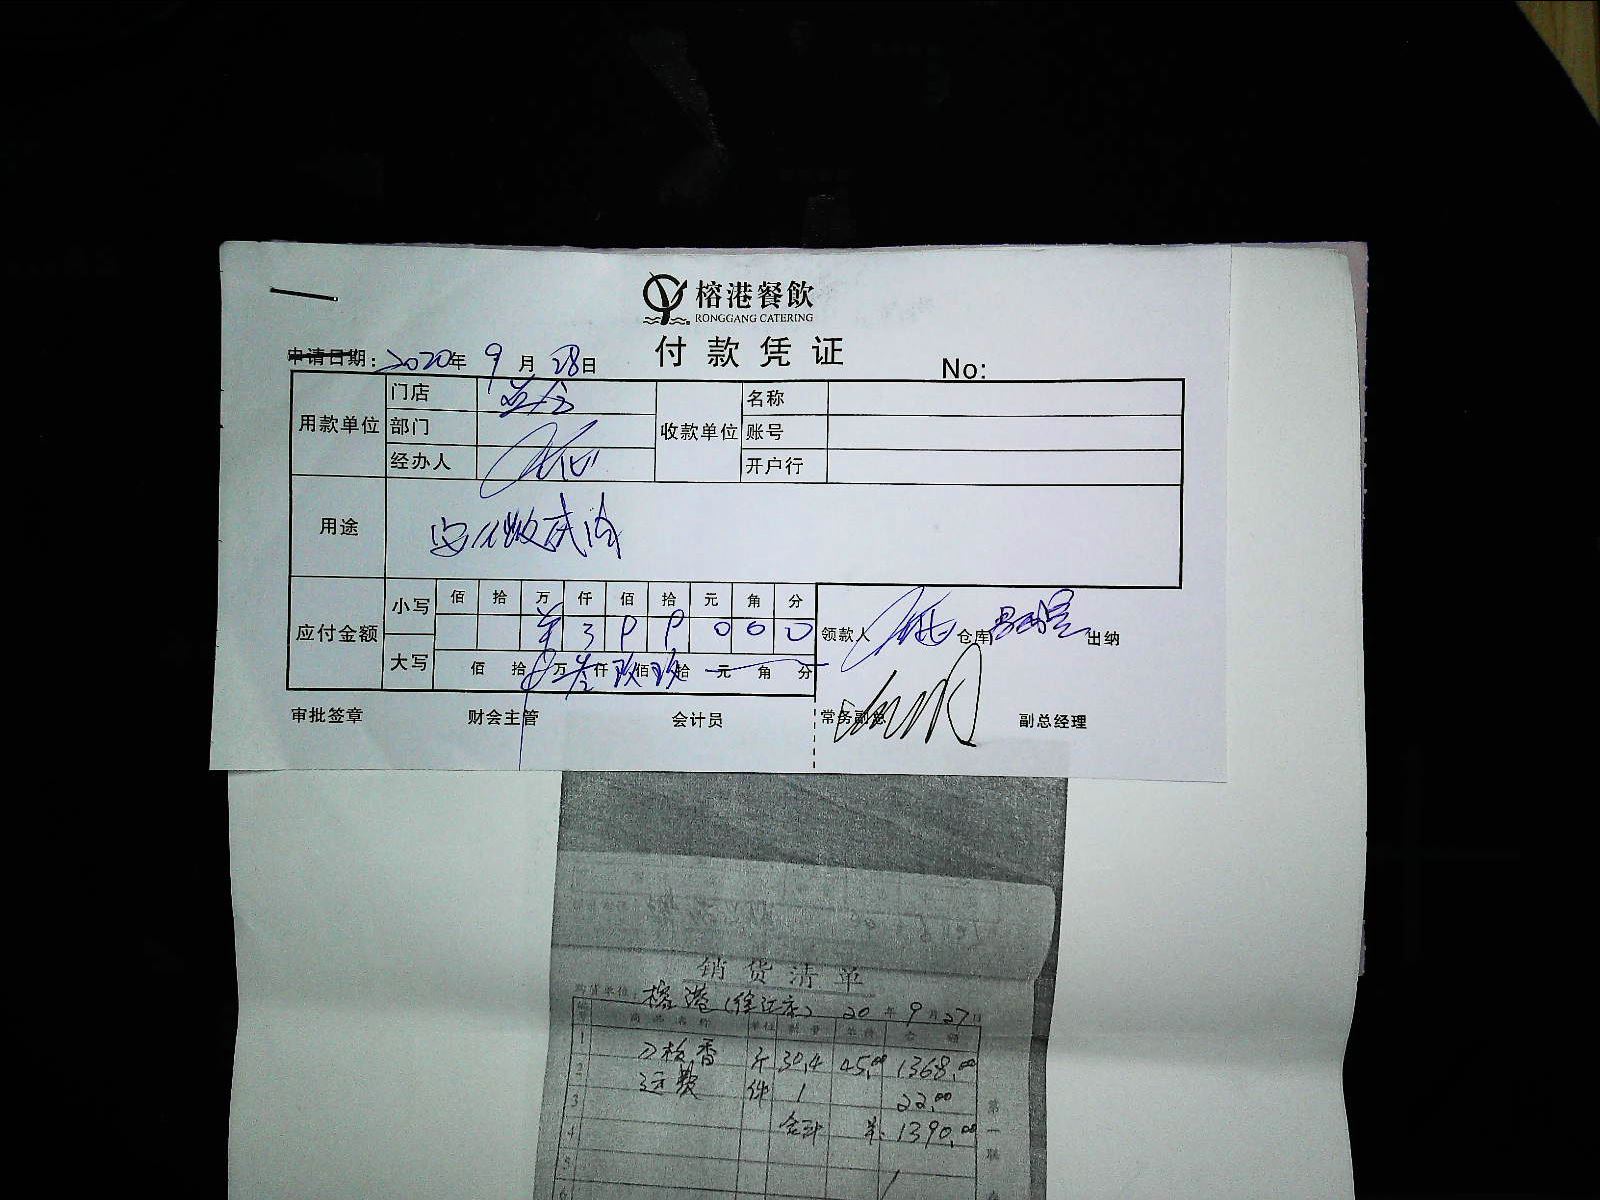 榕港餐飲
RONGGANG CATERING
付款凭证
申请日期：2020年9月28日
No:
用款单位 门店 收款单位 名称
部门 账号
经办人 开户行
用途
应付金额 小写 佰 拾 万 仟 佰 拾 元 角 分
羊 3 9 9 0 0 0
大写 佰 拾 万叁仟玖佰玖拾 元 角 分
领款人 仓库 出纳
审批签章 财会主管 会计员 常务副总 副总经理
销货清单
购货单位 榕港 20年9月27日
商品名称 单位 数量 单价 金额
1 刀板香 斤 30.4 45.00 1368.00
2 运费 件 1 22.00
3
4 合计 羊 1390.00
5
6
第一联